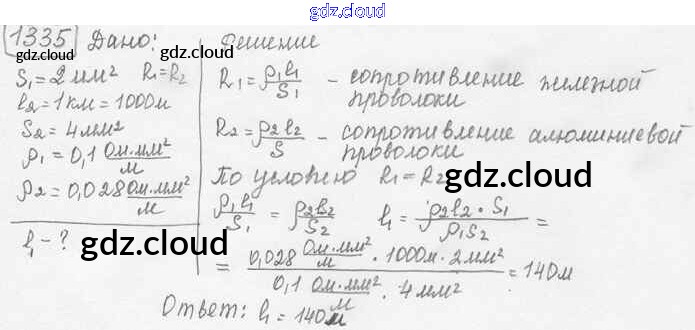 gdz.cloud
1335 Дано:
S₁ = 2 мм² R₁ = R₂
l₂ = 1 км = 1000 м
S₂ = 4 мм²
ρ₁ = 0,1 Ом·мм²/м
ρ₂ = 0,028 Ом·мм²/м
l₁ - ?
gdz.cloud
gdz.cloud
Решение
gdz.cloud
R₁ = ρ₁l₁/S₁ - сопротивление железной
проволоки
R₂ = ρ₂l₂/S - сопротивление алюминиевой
проволоки
По условию R₁ = R₂
gdz.cloud
ρ₁l₁/S₁ = ρ₂l₂/S₂ l₁ = ρ₂l₂·S₁/ρ₁S₂ =
= 0,028 Ом·мм²/м · 1000 м · 2 мм² / 0,1 Ом·мм²/м · 4 мм² = 140 м
gdz.cloud
Ответ: l₁ = 140 м
gdz.cloud